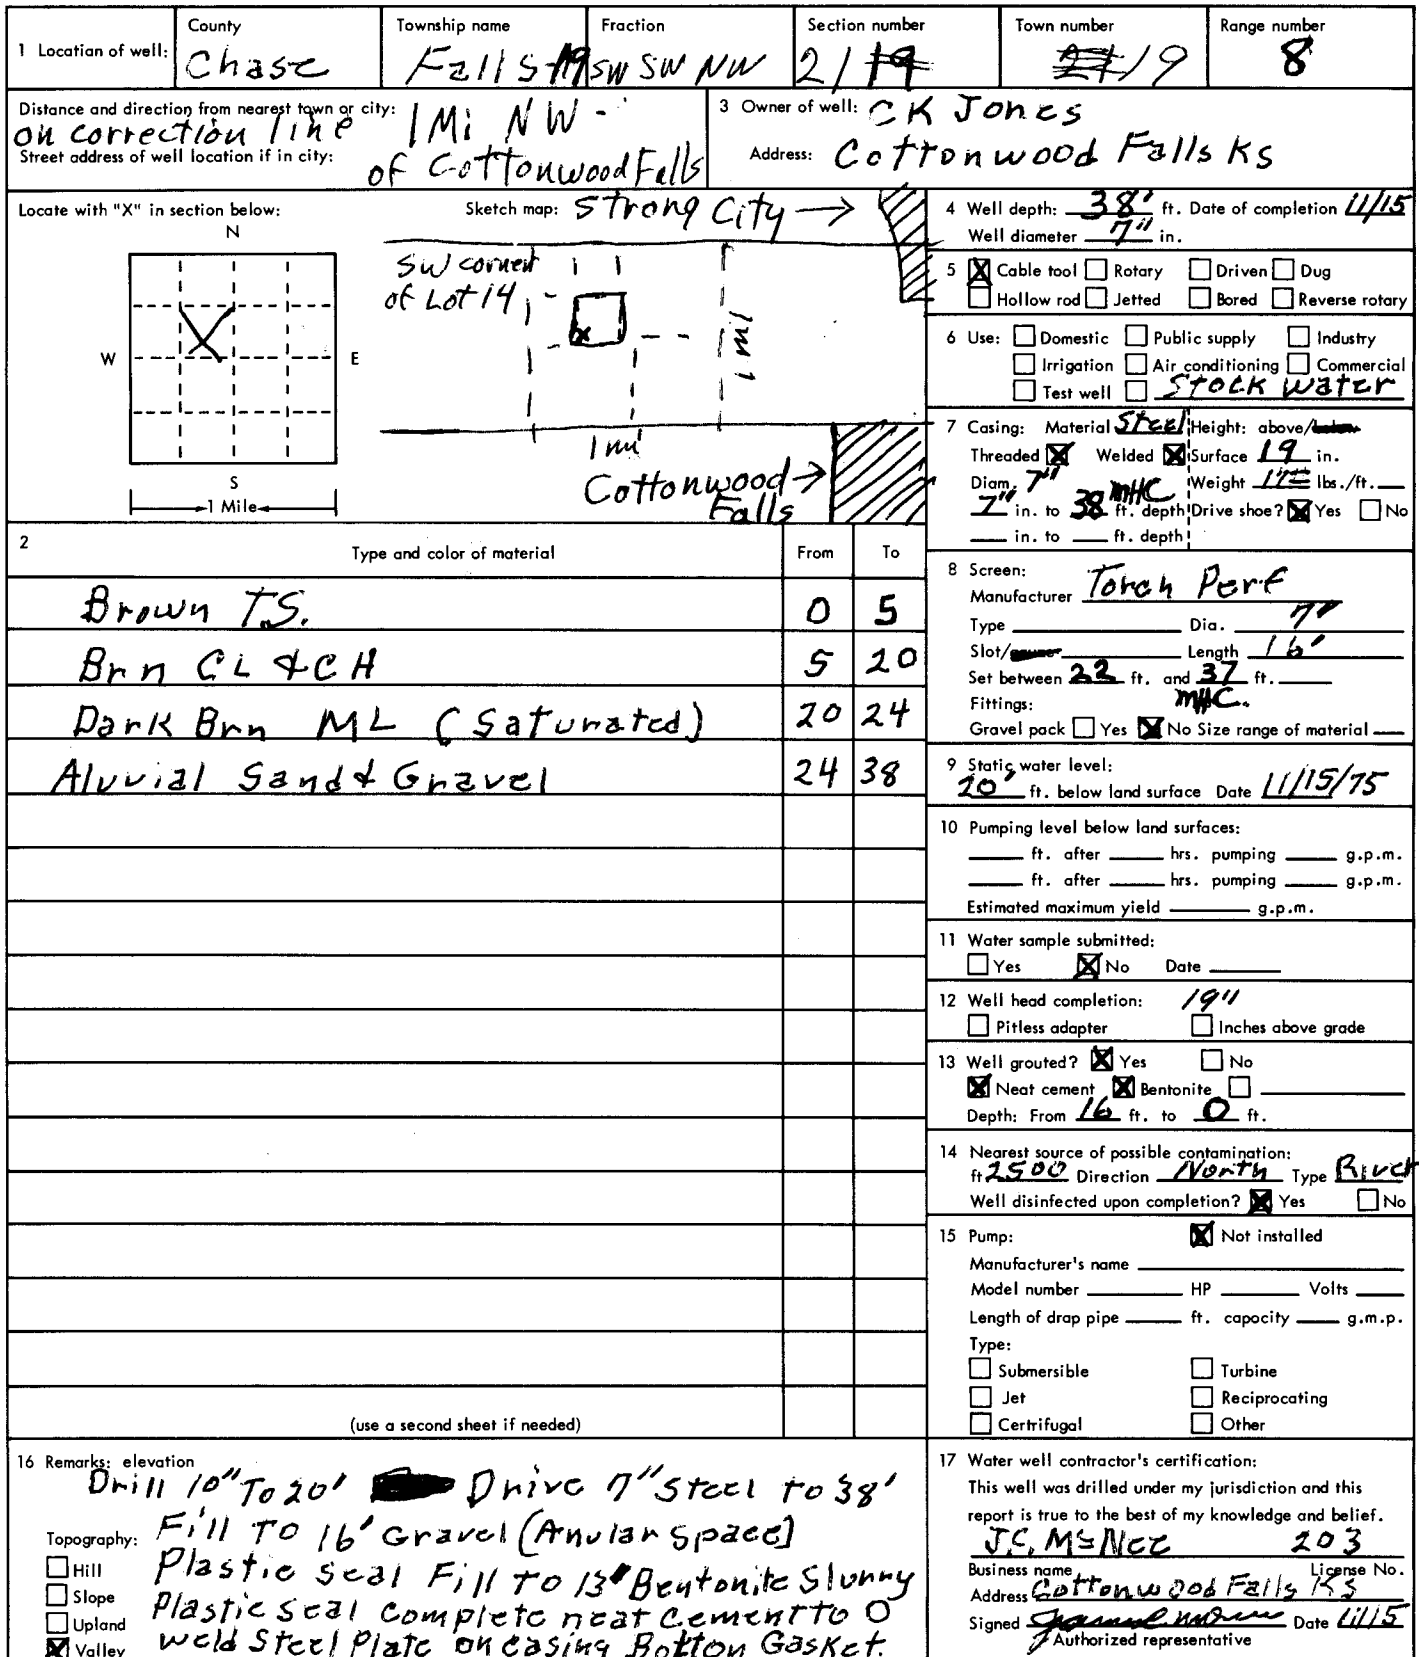 1 Location of well: County Chase Township name Falls Fraction SW SW NW Section number 21 Town number 19 Range number 8
Distance and direction from nearest town or city: 1 Mi NW -
on correction line
Street address of well location if in city: of Cottonwood Falls
3 Owner of well: CK Jones
Address: Cottonwood Falls Ks
Locate with "X" in section below:
N
W E
S
1 Mile
Sketch map: Strong City
SW corner
of Lot 14
X
1 mi
1 mi
Cottonwood
Falls
4 Well depth: 38' ft. Date of completion 11/15
Well diameter 7" in.
5 X Cable tool Rotary Driven Dug
Hollow rod Jetted Bored Reverse rotary
6 Use: Domestic Public supply Industry
Irrigation Air conditioning Commercial
Test well Stock Water
7 Casing: Material Steel Height: above/below
Threaded X Welded X Surface 19 in.
Diam. 7" Weight 17 lbs./ft.
7" in. to 38 ft. depth MHC Drive shoe? X Yes No
in. to ft. depth
2 Type and color of material From To
Brown T.S. 0 5
Brn CL & CH 5 20
Dark Brn ML (Saturated) 20 24
Aluvial Sand & Gravel 24 38
(use a second sheet if needed)
8 Screen:
Manufacturer Torch Perf
Type Dia. 7"
Slot/gauze Length 16'
Set between 22 ft. and 37 ft.
Fittings: MHC.
Gravel pack Yes X No Size range of material
9 Static water level:
20' ft. below land surface Date 11/15/75
10 Pumping level below land surfaces:
ft. after hrs. pumping g.p.m.
ft. after hrs. pumping g.p.m.
Estimated maximum yield g.p.m.
11 Water sample submitted:
Yes X No Date
12 Well head completion: 19"
Pitless adapter Inches above grade
13 Well grouted? X Yes No
X Neat cement X Bentonite
Depth: From 16 ft. to 0 ft.
14 Nearest source of possible contamination:
ft 2500 Direction North Type River
Well disinfected upon completion? X Yes No
15 Pump: X Not installed
Manufacturer's name
Model number HP Volts
Length of drap pipe ft. capacity g.m.p.
Type:
Submersible Turbine
Jet Reciprocating
Certrifugal Other
16 Remarks: elevation
Drill 10" To 20' Drive 7" Steel to 38'
Fill To 16' Gravel (Anular Space)
Plastic Seal Fill to 13' Bentonite Slurry
Plastic Seal Complete neat Cement to 0
weld Steel Plate on casing Botton Gasket.
Topography:
Hill
Slope
Upland
X Valley
17 Water well contractor's certification:
This well was drilled under my jurisdiction and this
report is true to the best of my knowledge and belief.
J.C. McNee 203
Business name License No.
Address Cottonwood Falls Ks
Signed Date 11/15
Authorized representative